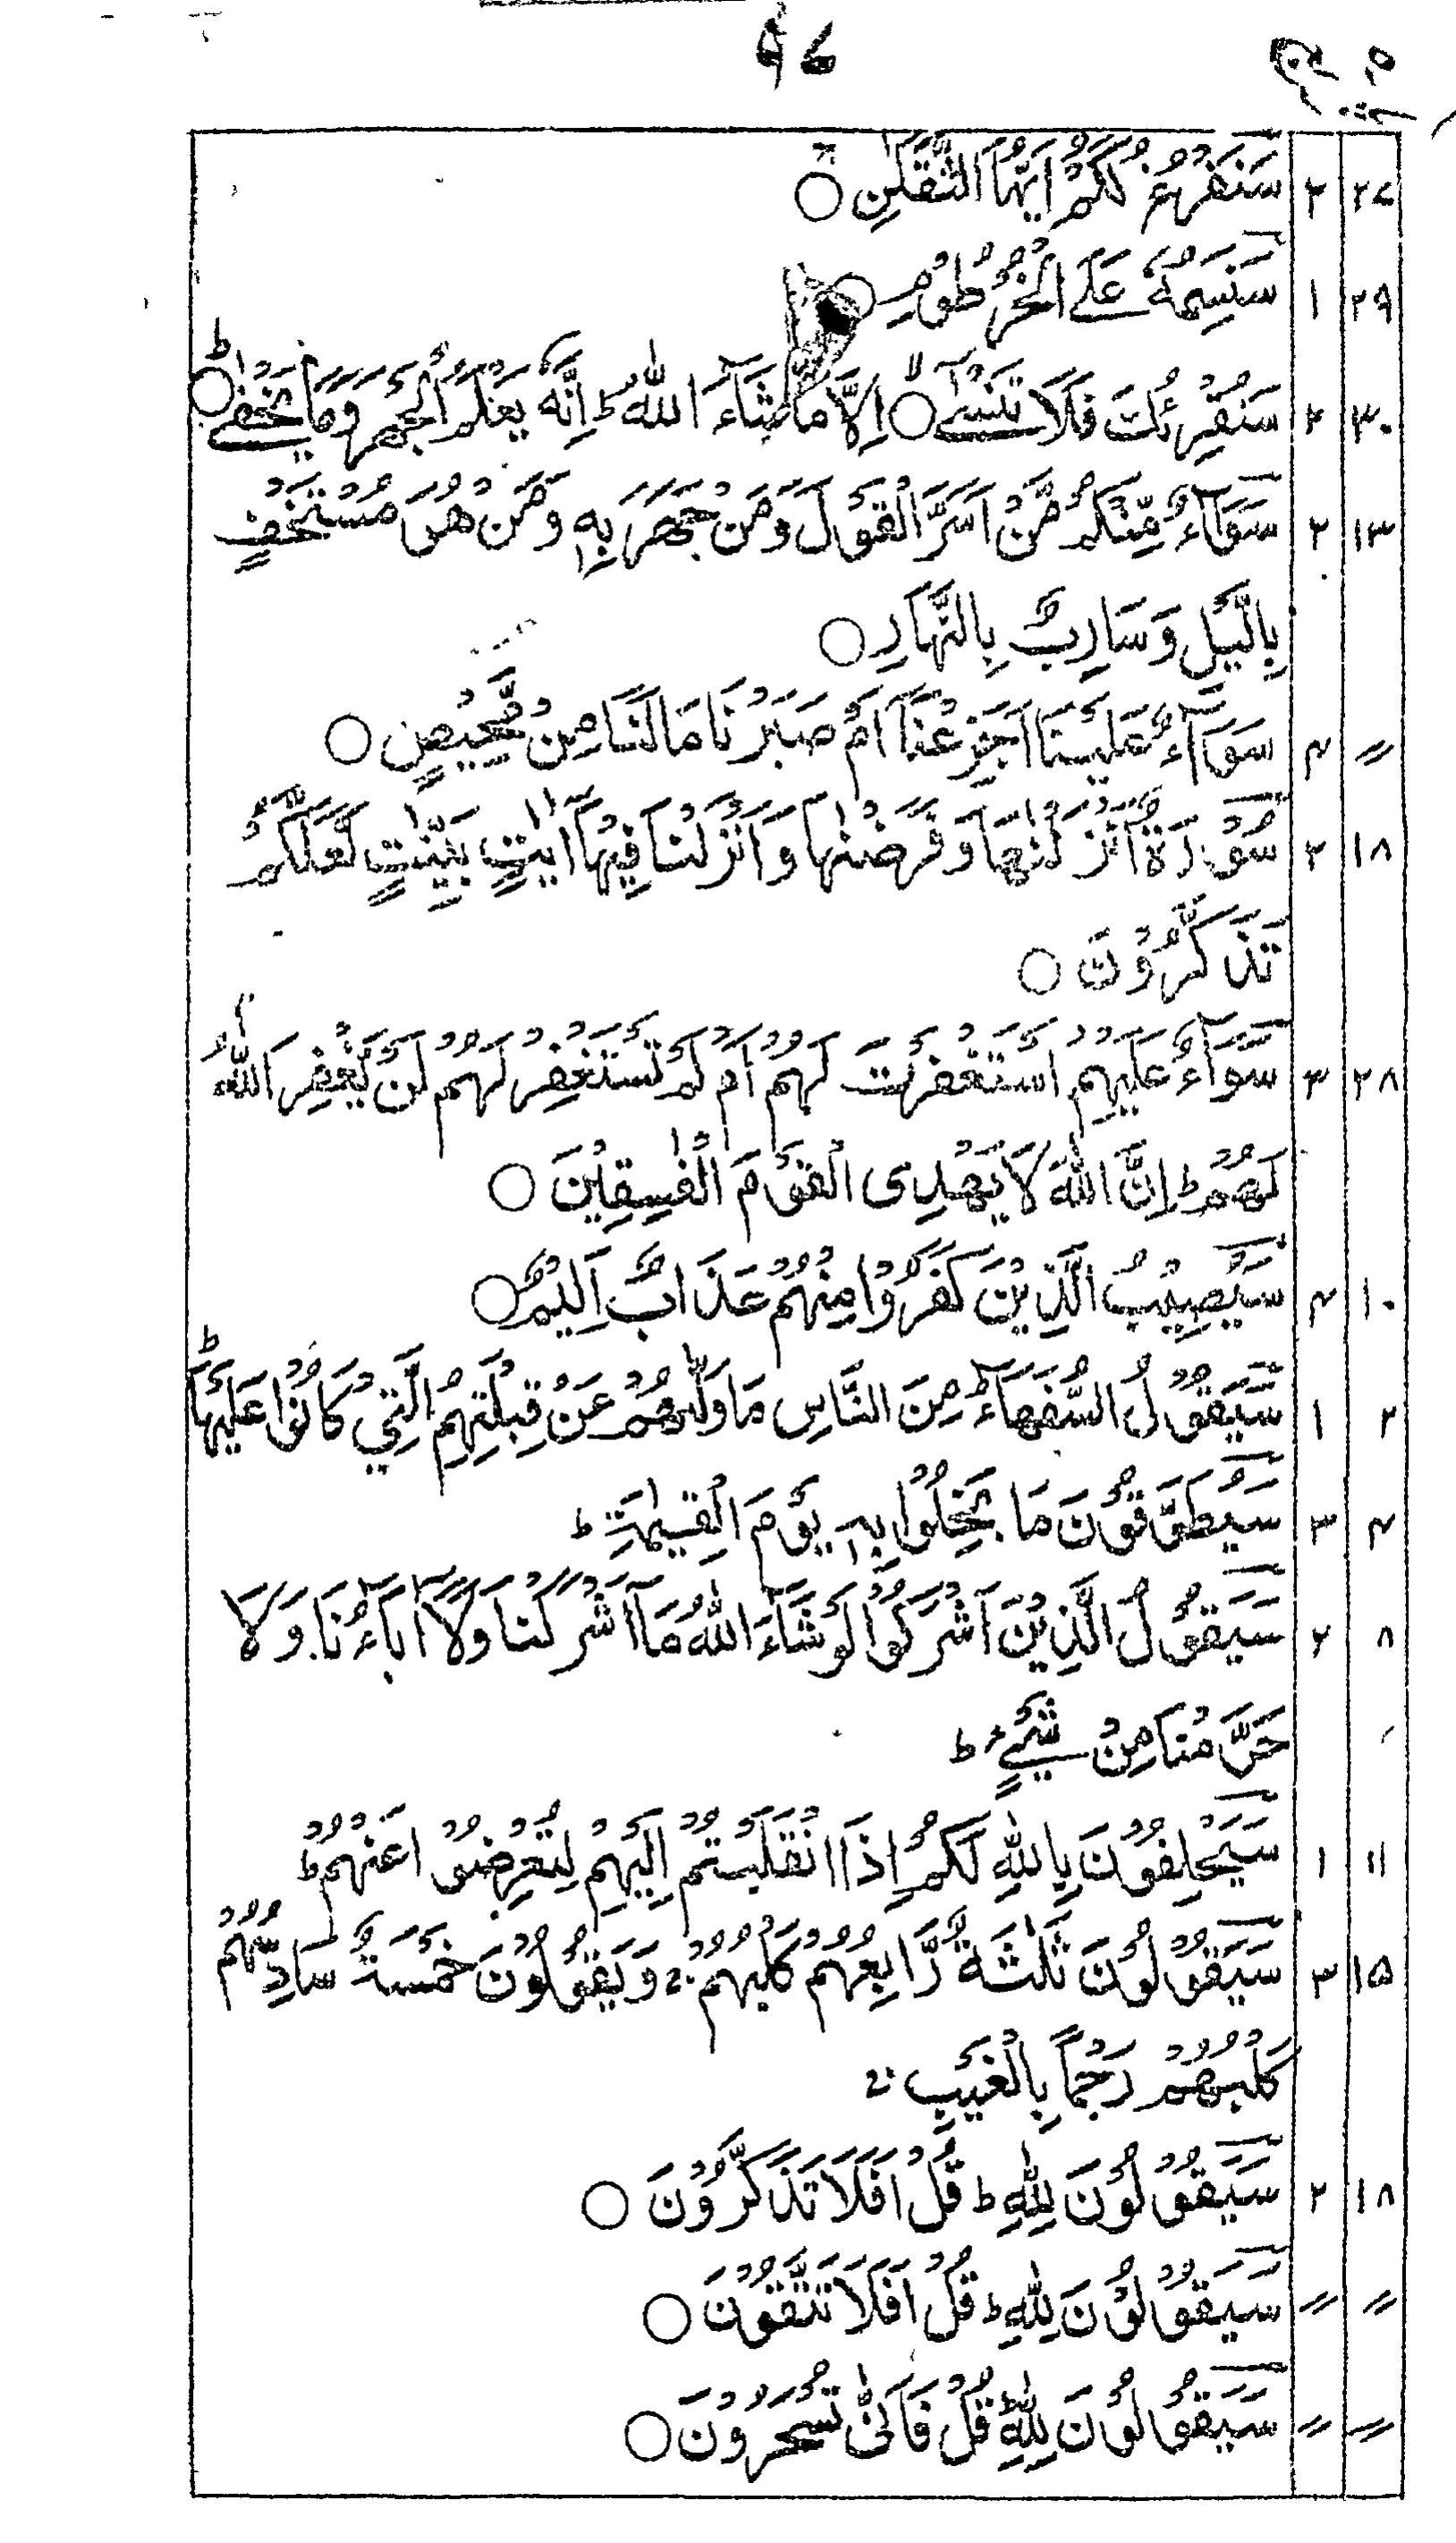 ۹۷
۲۷ ۲ سَنَفْرُغُ لَكُمْ اَيُّهَا الثَّقَلٰنِ ○
۲۹ ۱ سَنَسِمُهٗ عَلَے الْخُرْطُوْمِ ○
۳۰ ۲ سَنُقْرِئُكَ فَلَا تَنْسٰٓے ○ اِلَّا مَا شَآءَ اللّٰهُ ط اِنَّهٗ يَعْلَمُ الْجَهْرَ وَمَا يَخْفٰے ط ○
۱۳ ۲ سَوَآءٌ مِّنْكُمْ مَّنْ اَسَرَّ الْقَوْلَ وَمَنْ جَهَرَ بِهٖ وَمَنْ هُوَ مُسْتَخْفٍ
بِالَّيْلِ وَسَارِبٌ بِالنَّهَارِ ○
〃 ۴ سَوَآءٌ عَلَيْنَا اَجَزِعْنَآ اَمْ صَبَرْنَا مَا لَنَا مِنْ مَّحِيْصٍ ○
۱۸ ۲ سُوْرَةٌ اَنْزَلْنٰهَا وَفَرَضْنٰهَا وَاَنْزَلْنَا فِيْهَآ اٰيٰتٍ بَيِّنٰتٍ لَّعَلَّكُمْ
تَذَكَّرُوْنَ ○
۲۸ ۳ سَوَآءٌ عَلَيْهِمْ اَسْتَغْفَرْتَ لَهُمْ اَمْ لَمْ تَسْتَغْفِرْ لَهُمْ لَنْ يَّغْفِرَ اللّٰهُ
لَهُمْ ط اِنَّ اللّٰهَ لَا يَهْدِى الْقَوْمَ الْفٰسِقِيْنَ ○
۱۰ ۴ سَيُصِيْبُ الَّذِيْنَ كَفَرُوْا مِنْهُمْ عَذَابٌ اَلِيْمٌ ○
۲ ۱ سَيَقُوْلُ السُّفَهَآءُ مِنَ النَّاسِ مَا وَلّٰىهُمْ عَنْ قِبْلَتِهِمُ الَّتِيْ كَانُوْا عَلَيْهَا ط
۴ ۳ سَيُطَوَّقُوْنَ مَا بَخِلُوْا بِهٖ يَوْمَ الْقِيٰمَةِ ط
۸ ۲ سَيَقُوْلُ الَّذِيْنَ اَشْرَكُوْا لَوْ شَآءَ اللّٰهُ مَآ اَشْرَكْنَا وَلَآ اٰبَآءُنَا وَلَا
حَرَّمْنَا مِنْ شَيْءٍ ط
۱۱ ۱ سَيَحْلِفُوْنَ بِاللّٰهِ لَكُمْ اِذَا انْقَلَبْتُمْ اِلَيْهِمْ لِتُعْرِضُوْا عَنْهُمْ ط
۱۵ ۳ سَيَقُوْلُوْنَ ثَلٰثَةٌ رَّابِعُهُمْ كَلْبُهُمْ ج وَيَقُوْلُوْنَ خَمْسَةٌ سَادِسُهُمْ
كَلْبُهُمْ رَجْمًا بِالْغَيْبِ ج
۱۸ ۲ سَيَقُوْلُوْنَ لِلّٰهِ ط قُلْ اَفَلَا تَذَكَّرُوْنَ ○
〃 〃 سَيَقُوْلُوْنَ لِلّٰهِ ط قُلْ اَفَلَا تَتَّقُوْنَ ○
〃 〃 سَيَقُوْلُوْنَ لِلّٰهِ ط قُلْ فَاَنّٰى تُسْحَرُوْنَ ○